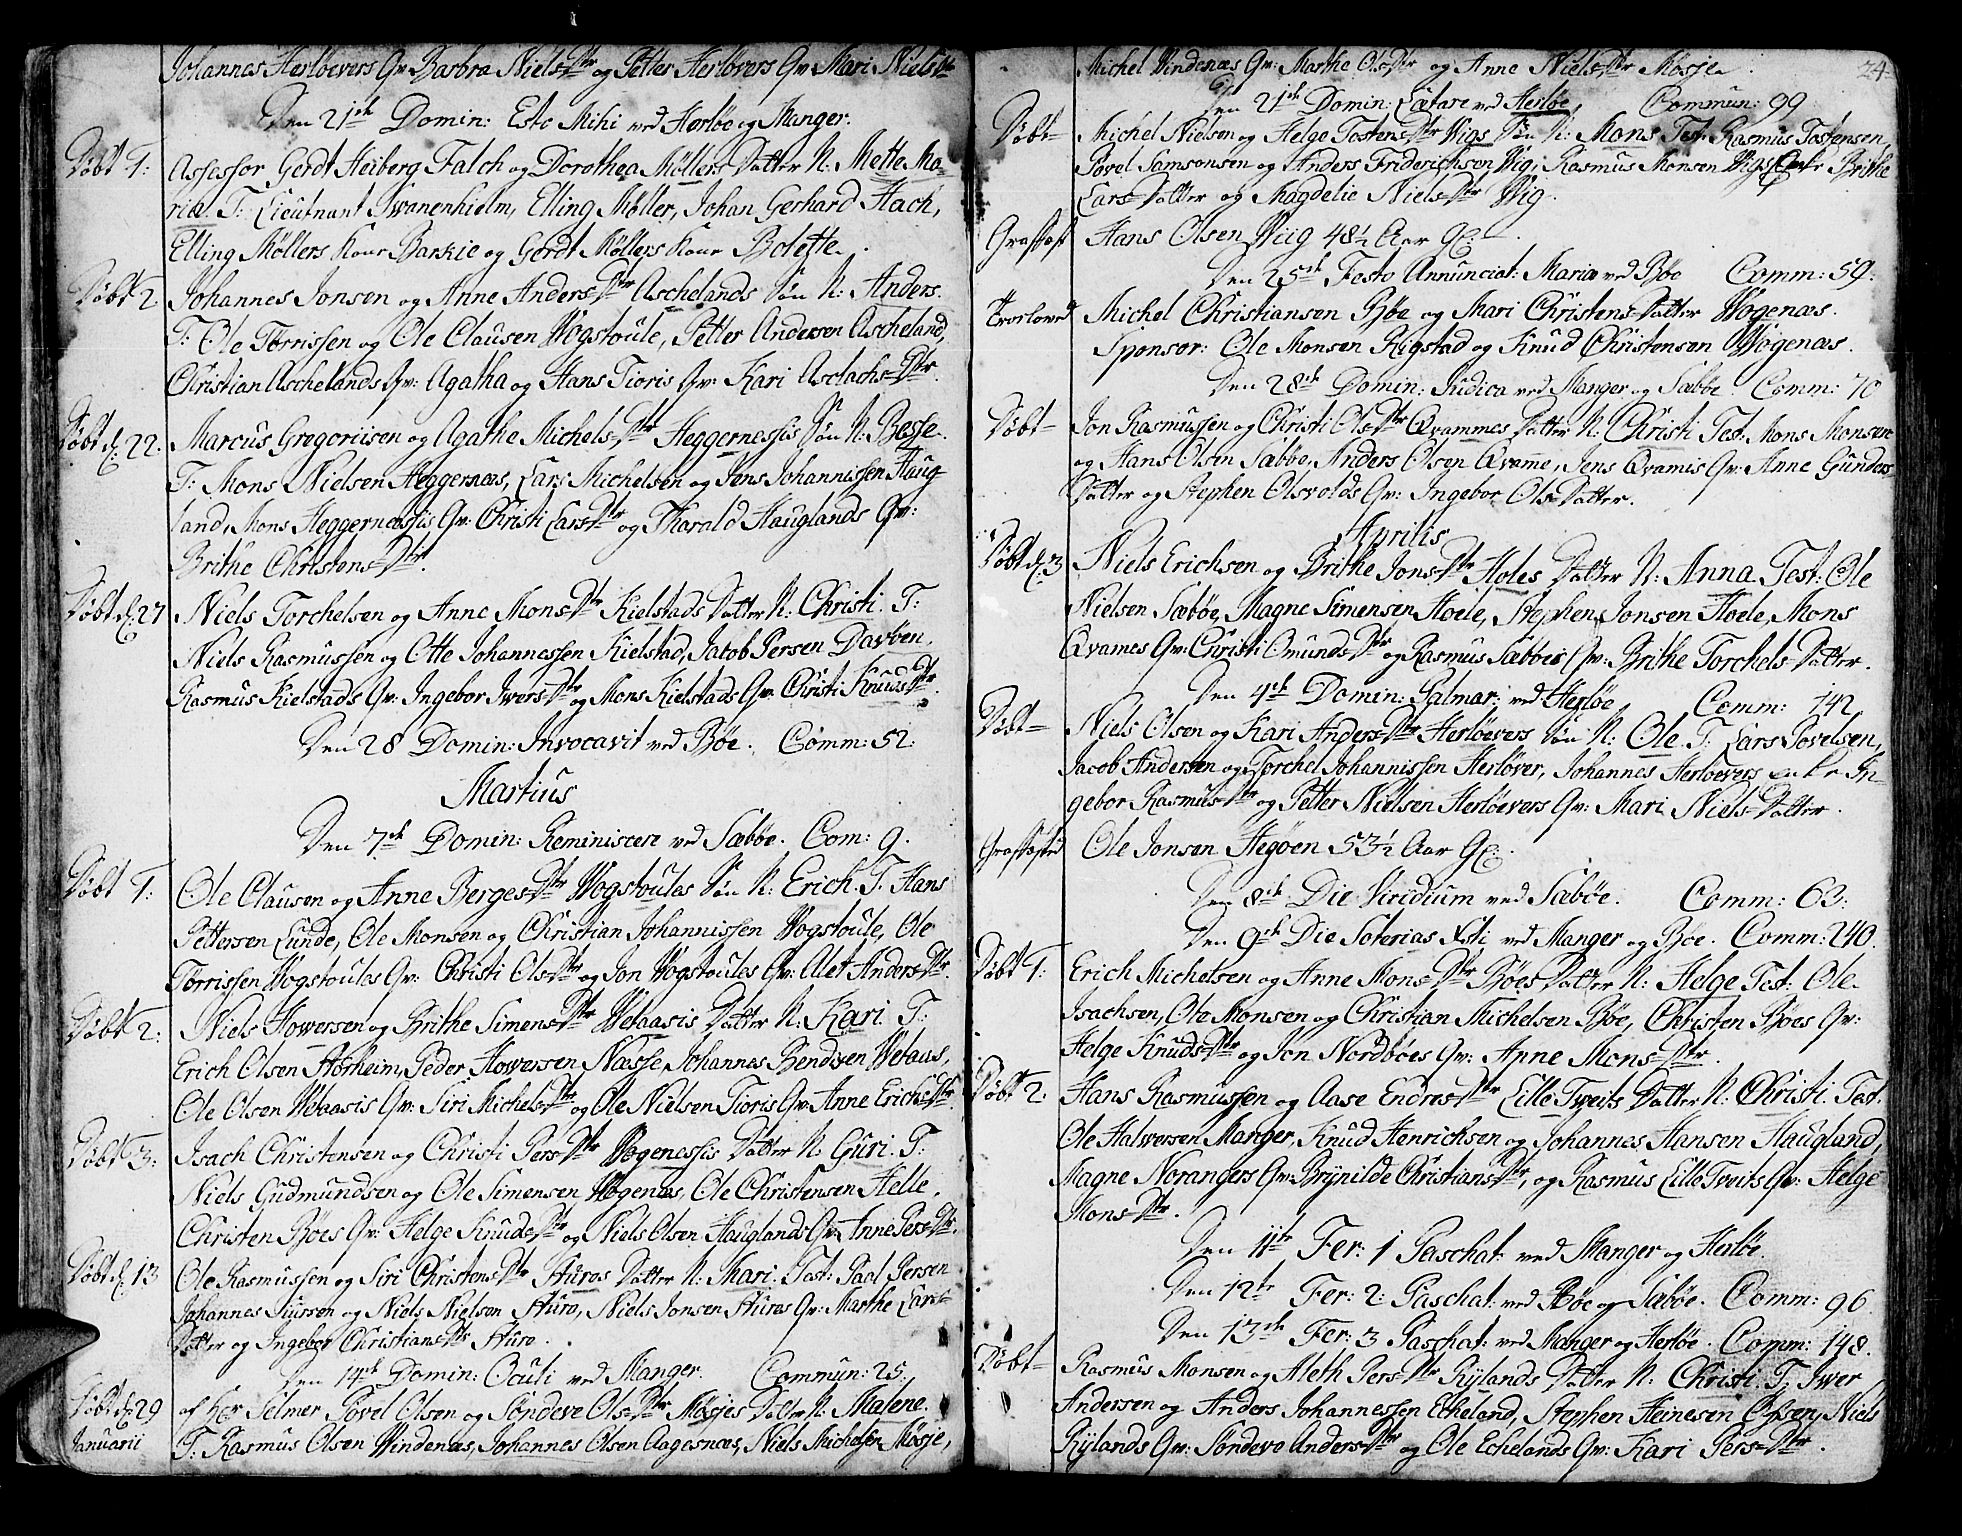 Johannes Herløevers Qv: Barbra Niels Dtr og Petter Herløvers Qv: Mari Niels Dtr
Den 21de Domin: Esto Mihi ved Herløe og Manger.
Døbt 1: Assessor Gerdt Heiberg Falch og Dorothea Møllers Datter N: Mette Ma-
ria. T: Lieutnant Swanenhielm, Elling Møller, Johan Gerhard Hach,
Elling Møllers Kone og Gerdt Møllers Kone Bolette.
Døbt 2 Johannes Jonsen og Anne Anders Dtr Aschelands Søn N: Anders.
T: Ole Torrissen og Ole Clausen Wogstoule, Petter Andersen Ascheland,
Christian Aschelands Qv: Agatha og Hans Tioris Qv: Kari Aslachs Dtr.
Døbt d: 22. Marcus Gregoriisen og Agathe Michels Dtr Heggernessis Søn N: Besse.
T: Mons Nielsen Heggernæs, Lars Michelsen og Jens Johannissen Haug
land, Mons Heggernessis Qv: Christi Lars Dtr og Tharald Hauglands Qv:
Brithe Christens Dtr.
Døbt d: 27 Niels Torchelsen og Anne Mons Dtr Kielstads Datter N: Christi. T:
Niels Rasmussen og Otte Johannessen Kielstad, Jacob Persen Davøen.
Rasmus Kielstads Qv: Ingebor Iwers Dtr og Mons Kielstads Qv: Christi Knuds Dtr.
Den 28 Domin: Invocavit ved Bøe. Comm: 52.
Martius
Den 7de Domin: Reminiscere ved Sæbøe. Com: 9.
Døbt 1: Ole Clausen og Anne Berges Dtr Wogstoules Søn N: Erich. T: Hans
Pettersen Lunde, Ole Monsen og Christian Johannissen Wogstoule, Ole
Torrissen Wogstoules Qv: Christi Ols Dtr og Jon Wogstoules Qv: Alet Anders Dtr.
Døbt 2: Niels Howersen og Brithe Simens Dtr Wetaasis Datter N: Kari. T:
Erich Olsen Horheim, Peder Howersen Næsse, Johannes Bendixen Wetaus,
Ole Olsen Wetaasis Qv: Siri Michels Dtr og Ole Nielsen Tioris Qv: Anne Erichs Dtr.
Døbt 3: Isach Christensen og Christi Pers Dtr Wogenessis Datter N: Guri. T:
Niels Gudmundsen og Ole Simensen Wogenæs, Ole Christensen Helle.
Christen Bøes Qv: Helge Knuds Dtr og Niels Olsen Hauglands Qv: Anne Pers Dtr.
Døbt d: 13 Ole Rasmussen og Siri Christens Dtr Sturos Datter N: Mari. Test: Paal Persen
Johannes Siursen og Niels Nielsen Sturo, Niels Jonsen Sturos Qv: Marthe Lars
Datter og Ingebor Christians Dtr Sturo.
Den 14de Domin: Oculi ved Manger. Commun: 25.
Døbt d: 29 af Her Selmer Povel Olsen og Søndeve Ols Dtr Møsjes Datter N: Malene.
Januarii T: Rasmus Olsen Windenæs, Johannes Olsen Aagesnæs, Niels Michelsen Møsje,
24
Michel Windenæs Qv: Marthe Ols Dtr og Anne Niels Dtr Møsje.
Den 21de Domin: Lætare ved Herløe. Commun: 99
Døbt Michel Nielsen og Helge Tostens Dtr Wigs Søn N: Mons Test: Rasmus Tostensen,
Povel Samsonsen og Anders Friderichsen Wig, Rasmus Monsen Wigs Enke Brithe
Lars Datter og Magdelie Niels Dtr Wig.
Grafæst Hans Olsen Wiig 48½ Aar
Den 25de Festo Annunciat: Mariæ ved Bøe Comm: 59.
Trorloved Michel Christiansen Bøe og Mari Christens Datter Wogenæs.
Sponsor: Ole Monsen Rigstad og Knud Christensen Wogenæs.
Den 28de Domin: Judica ved Manger og Sæbøe. Comm: 70
Døbt Jon Rasmussen og Christi Ols Dtr Qvammes Datter N: Christi Test: Mons Monsen
og Hans Olsen Sæbbø, Anders Olsen Qvamme, Jens Qvamis Qv: Anne Gunders
Datter og Stephen Olsvolds Qv: Ingebor Ols Datter.
Aprilis
Døbt d: 3 Niels Erichsen og Brithe Jons Dtr Holes Datter N: Anna. Test: Ole
Nielsen Sæbøe, Magne Simensen Hoele, Stephen Jonsen Hoele, Mons
Qvames Qv: Christi Omunds Dtr og Rasmus Sæbøes Qv: Brithe Torchels Datter.
Den 4de Domin: Palmar: ved Herløe Comm: 142
Døbt Niels Olsen og Kari Anders Dtr Herløevers Søn N: Ole. T: Lars Povelsen,
Jacob Andersen og Torchel Johannissen Herløver, Johannes Herløevers Enke In-
gebor Rasmus Dtr og Petter Nielsen Herløevers Qv: Mari Niels Datter.
Grafæstet Ole Jonsen Hegøen 53½ Aar
Den 8de Die Viridium ved Sæbøe. Comm: 63.
Den 9de Die Soterias Xsti ved Manger og Bøe. Comm: 240.
Døbt 1: Erich Michelsen og Anne Mons Dtr Bøes Datter N: Helge Test: Ole
Isachsen, Ole Monsen og Christian Michelsen Bøe, Christen Bøes Qv:
Helge Knuds Dtr og Jon Nordbøes Qv: Anne Mons Dtr.
Døbt 2: Hans Rasmussen og Aase Endres Dtr Lille Tweits Datter N: Christi. Test:
Ole Halwersen Manger, Knud Henrichsen og Johannes Hansen Haugland,
Magne Norangers Qv: Brynilde Christians Dtr, og Rasmus Lille Tveits Qv: Helge
Mons Dtr.
Den 11te Fer: 1 Paschat: ved Manger og Herløe.
Den 12te Fer: 2: Paschat: ved Bøe og Sæbøe. Comm: 96.
Den 13de Fer: 3 Paschat: ved Manger og Herløe. Comm: 148.
Døbt Rasmus Monsen og Aleth Pers Dtr Rylands Datter N: Christi. T: Iwer
Andersen og Anders Johannessen Echeland, Stephen Heinesen, Niels
Rylands Qv: Søndeve Anders Dtr og Ole Echelands Qv: Kari Pers Dtr.